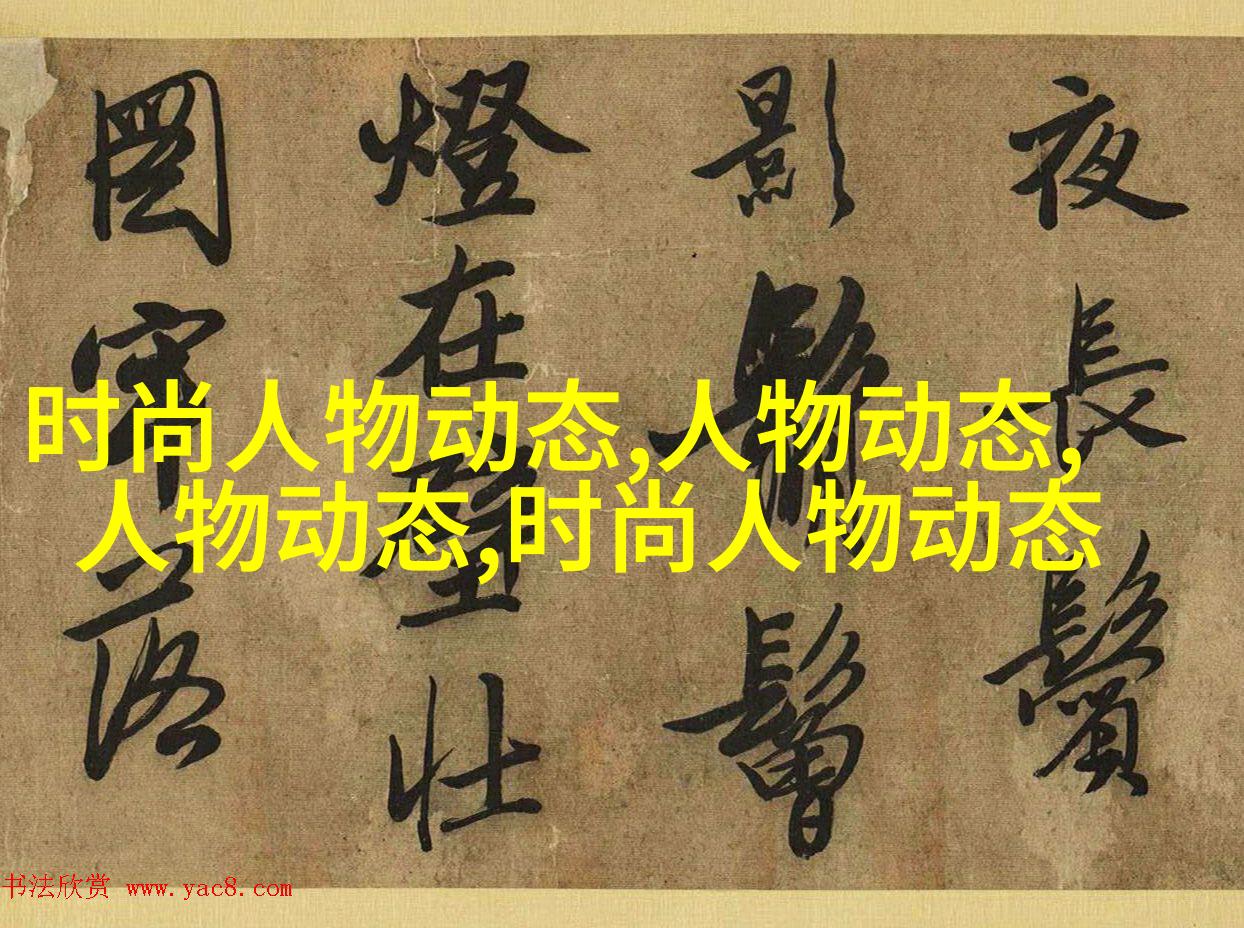 夜長鬢
影鬅鬙
燈在壁壯
圖牢落
时尚人物动态,人物动态,
人物动态,时尚人物动态
书法欣赏 www.yac8.com